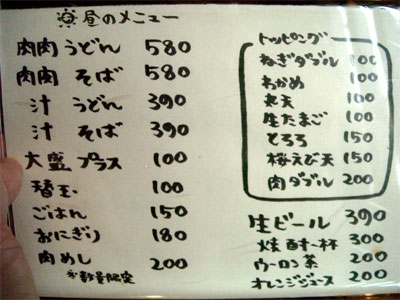 楽 昼のメニュー
肉肉 うどん 580
肉肉 そば 580
汁 うどん 390
汁 そば 390
大盛 プラス 100
替玉 100
ごはん 150
おにぎり 180
肉めし 200
※数量限定
トッピング
ねぎダブル 100
わかめ 100
丸天 100
生たまご 100
とろろ 150
桜えび天 150
肉ダブル 200
生ビール 390
焼酎一杯 300
ウーロン茶 200
オレンジジュース 200